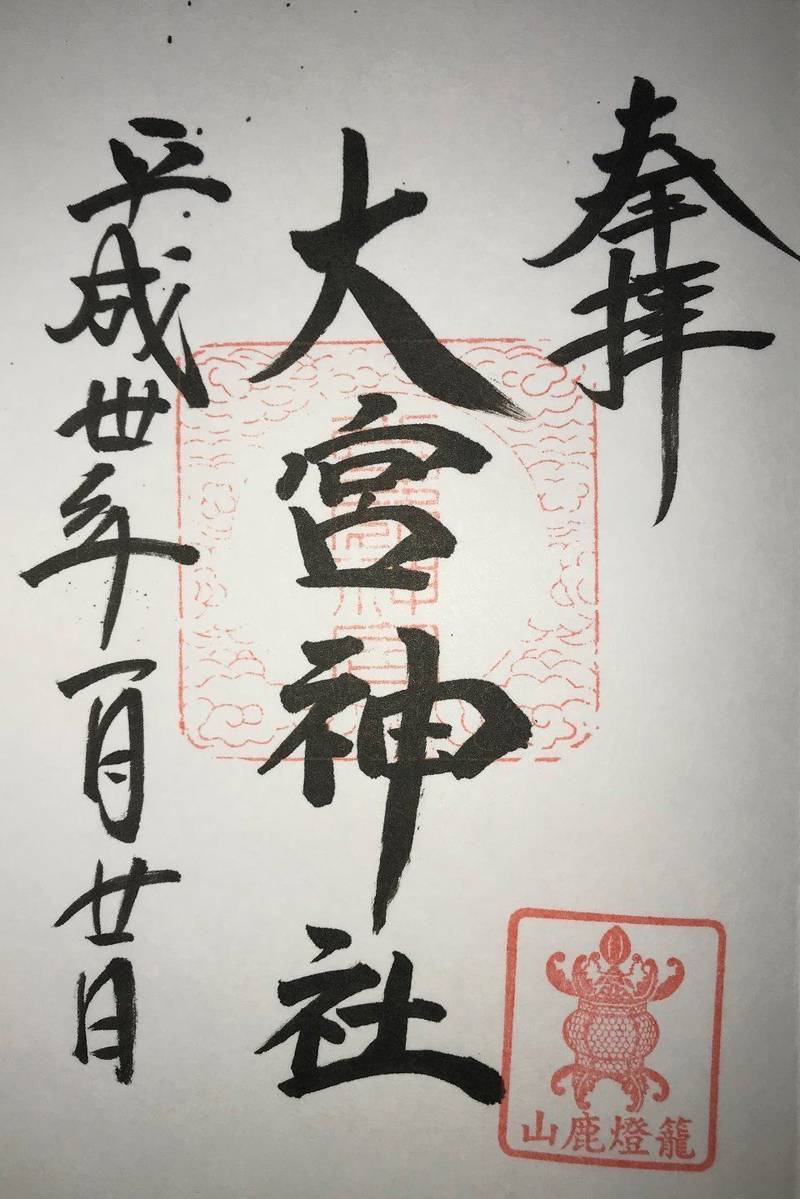 奉拝
大宮神社
平成丗年一月廿日
山鹿燈籠